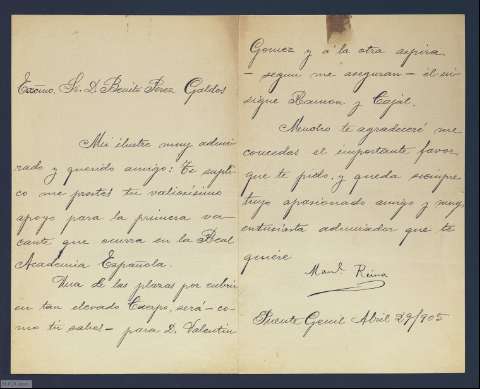 Excmo. Sr. D. Benito Pérez Galdós
Mi ilustre, muy admi-
rado y querido amigo: te supli-
co me prestes tu valiosísimo
apoyo para la primera va-
cante que ocurra en la Real
Academia Española.
Una de las plazas por cubrir
en tan elevado Cuerpo, será - co-
mo tú sabes - para D. Valentín
Gomez y á la otra aspira
- segun me aseguran - el in-
signe Ramon y Cajal.
Mucho te agradeceré me
concedas el importante favor
que te pido, y queda siempre
tuyo apasionado amigo y muy
entusiasta admirador que te
quiere
Manl. Reina
Puente Genil Abril 29/905